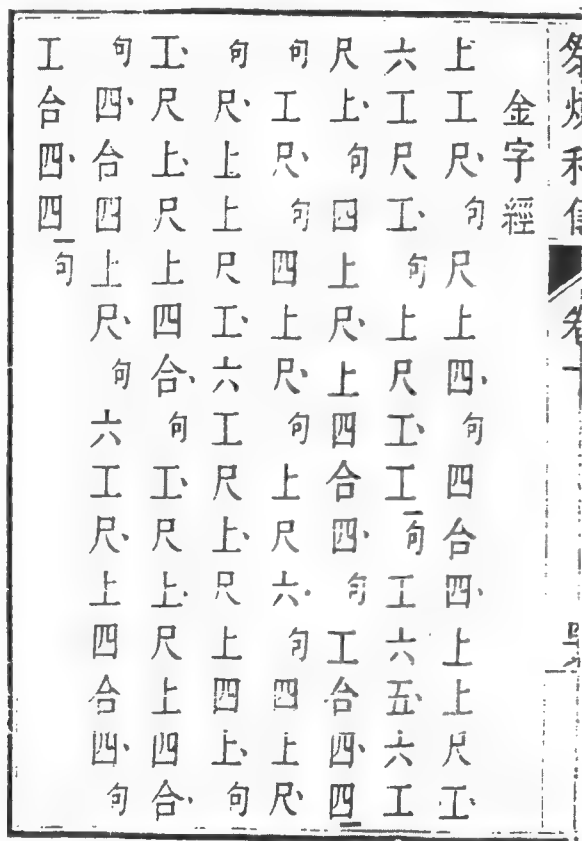 金字經
上工尺、句尺上四、句四合四、上上尺工、
六工尺工、句上尺工、工句工六五、六工
尺上、句四上尺、上四合四、句工合四、四
句工尺、句四上尺、句上尺六、句四上尺、
句尺、上上尺工、六工尺上、尺上四上、句
工、尺上、尺上四合、句工、尺上、尺上四合、
句四、合四上尺、句六工尺、上四合四、句
工合四、四句